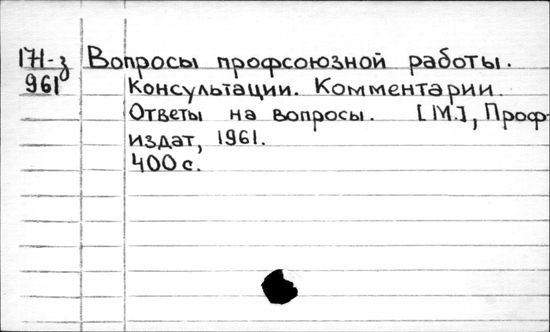 171-з Вопросы профсоюзной работы.
961 Консультации. Комментарии.
Ответы на вопросы. [М.], Проф-
издат, 1961.
400 с.